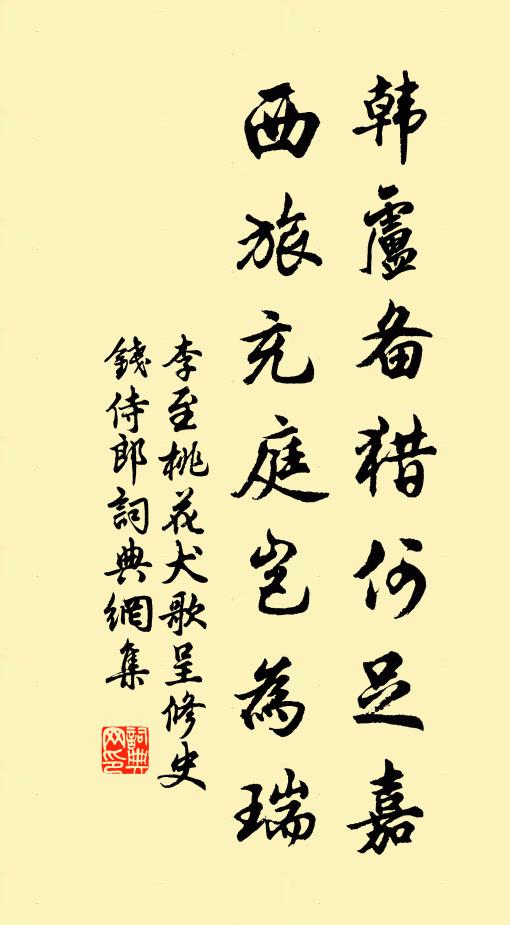 韩盧备猎何足嘉
西旅充庭岂為瑞
李至桃花犬歌呈修史
錢侍郎詞典網集
詞典網印